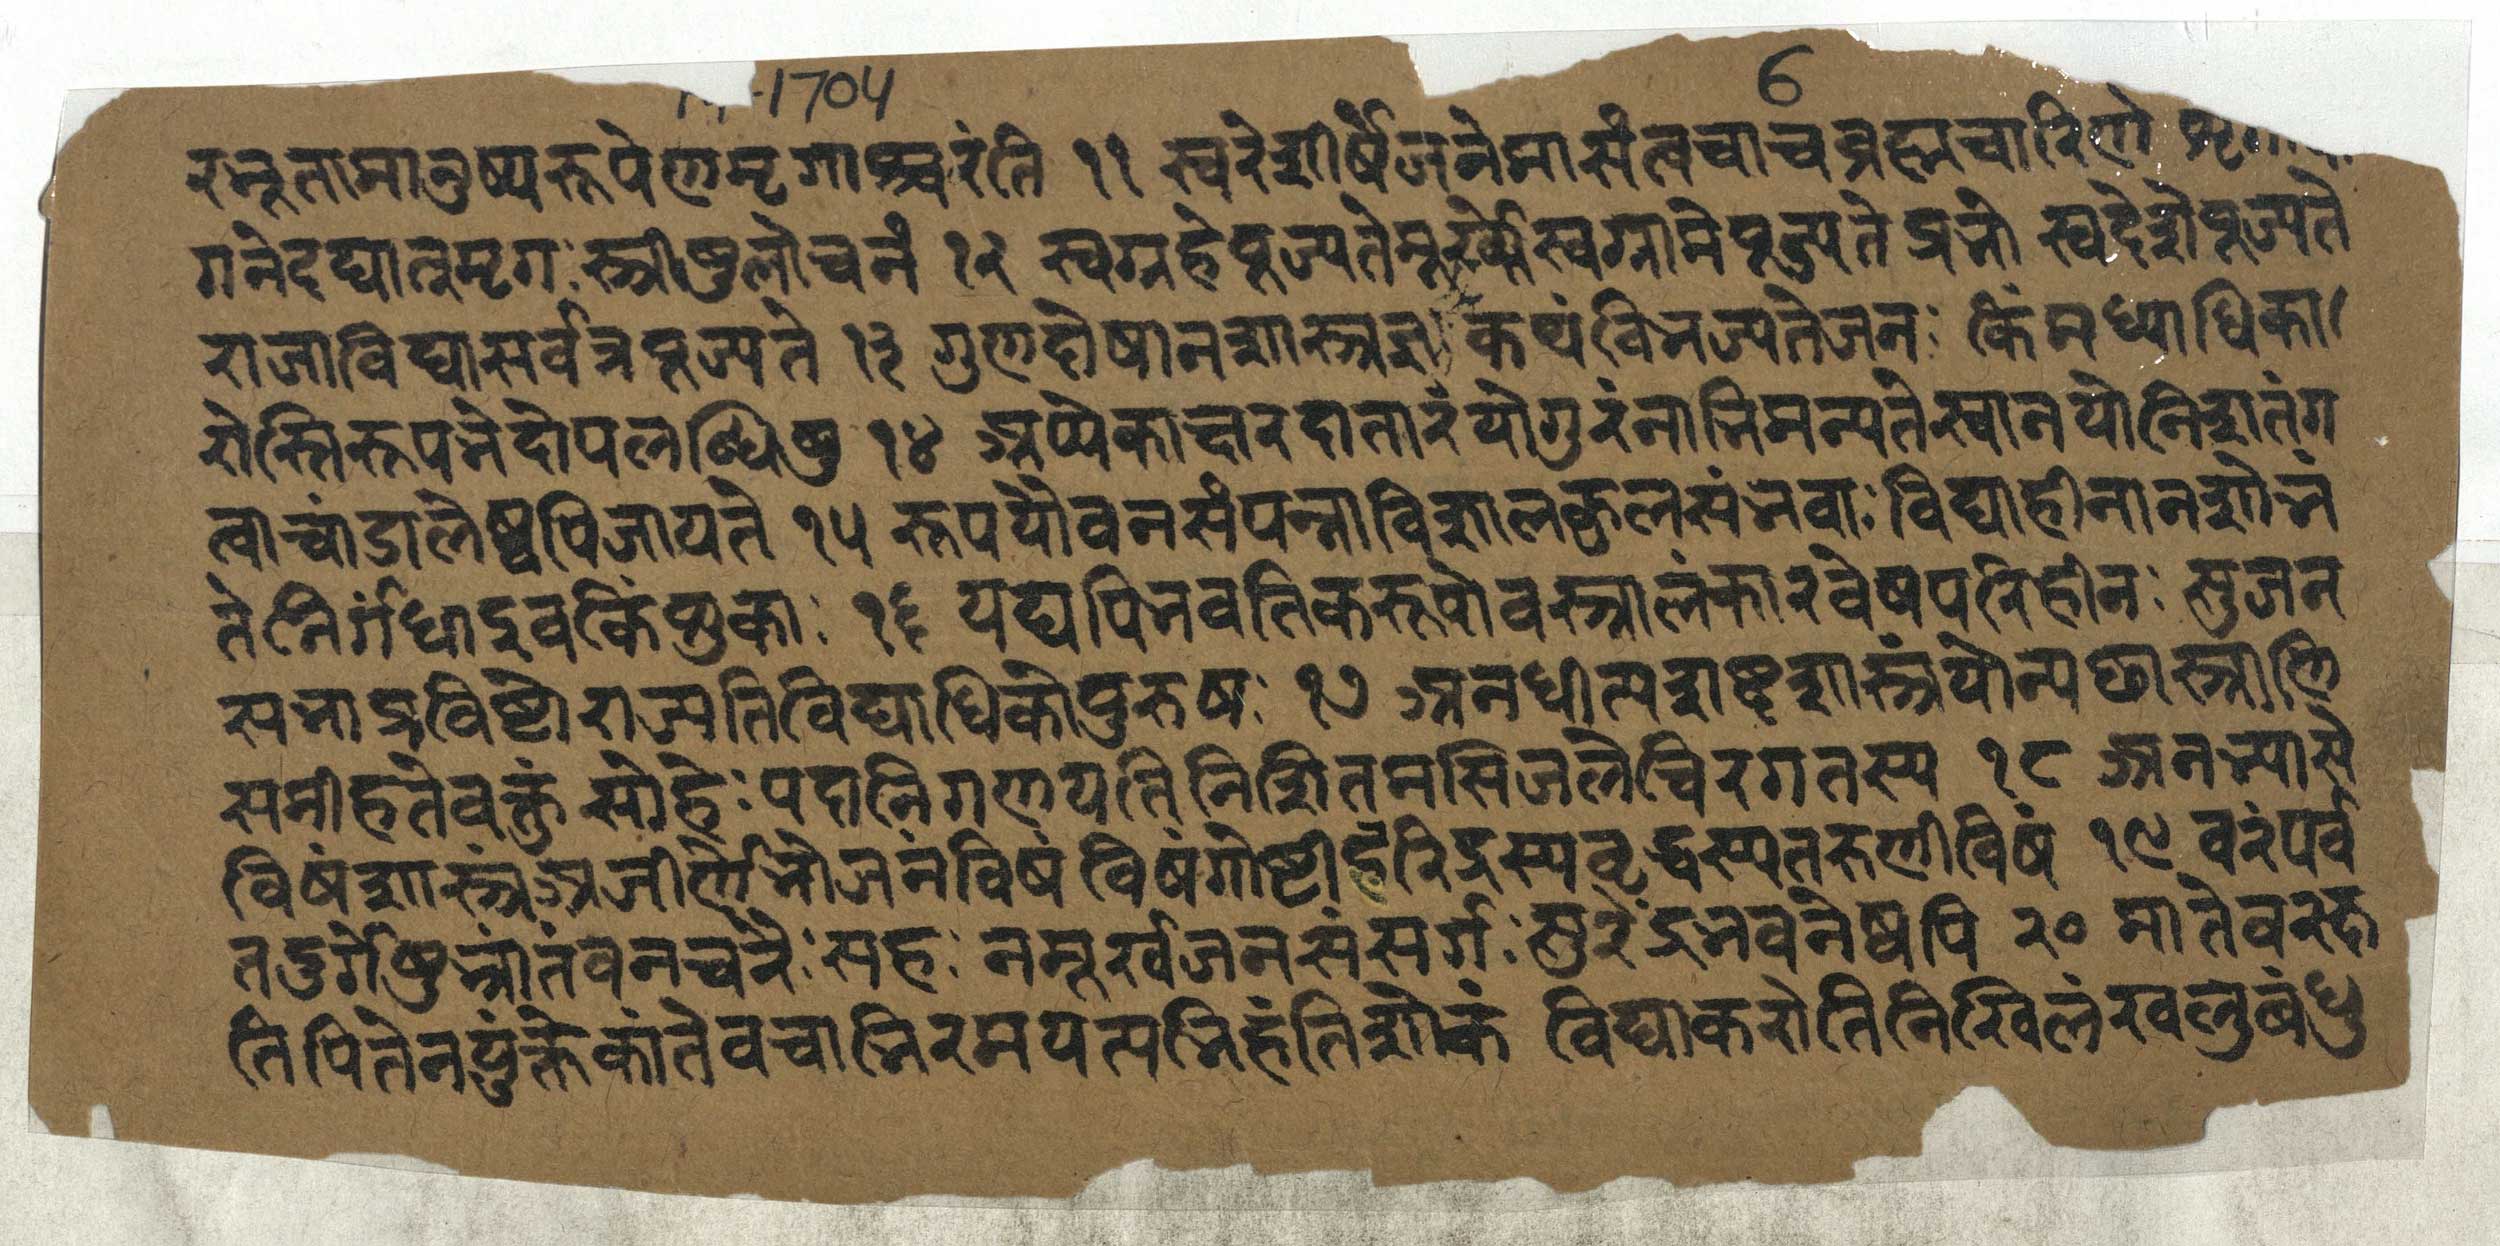 -1704 6
रभूतामानुष्यरूपेणमृगाश्चरंति ११ स्वरेशीर्षेजनेमासंत्वचाचब्रह्मचारिणे
गनेदद्यातूमृगः स्त्रीषुलोचनं १२ स्वग्रहेपूज्यतेमूर्खस्वग्रामेपूज्यतेप्रभो स्वदेशेपूज्यते
राजाविद्यासर्वत्रपूज्यते १३ गुणदोषानशास्त्रज्ञ कथंविभज्यतेजनः किंमध्याधिका
रोस्तिरूपभेदोपलब्धिषु १४ अप्येकाक्षरदातारंयोगुरंनाभिमन्यतेस्वानयोनिशतंग
त्वाचांडालेष्वपिजायते १५ रूपयौवनसंपन्नाविशालकुलसंभवाः विद्याहीनानशोभं
तेनिर्गंधाइवकिंशुकाः १६ यद्यपिभवतिकरूपोवस्त्रालंकारवेषपरिहीनः सुजन
सभाप्रविष्टोराज्यतिविद्याधिकोपुरुषः १७ अनधीत्यशब्दशास्त्रंयोन्यछास्त्राणि
समीहतेवक्तुं सोहेः पदानिगणयतिनिशितमसिजलेचिरगतस्य १८ अनभ्यासे
विषंशास्त्रंअजीर्णेभोजनंविषं विषंगोष्टीदरिद्रस्यवृद्धस्यतरुणीविषं १९ वरंपर्व
तदुर्गेषुभ्रांतंवनचरैः सहः नमूर्खजनसंसर्गः सुरेंद्रभवनेष्वपि २० मातेवरक्ष
तिपितेनयुंक्तेकांतेवचाभिरमयत्यभिहंतिशोकं विद्याकरोतिनिखिलंखलुबंधु